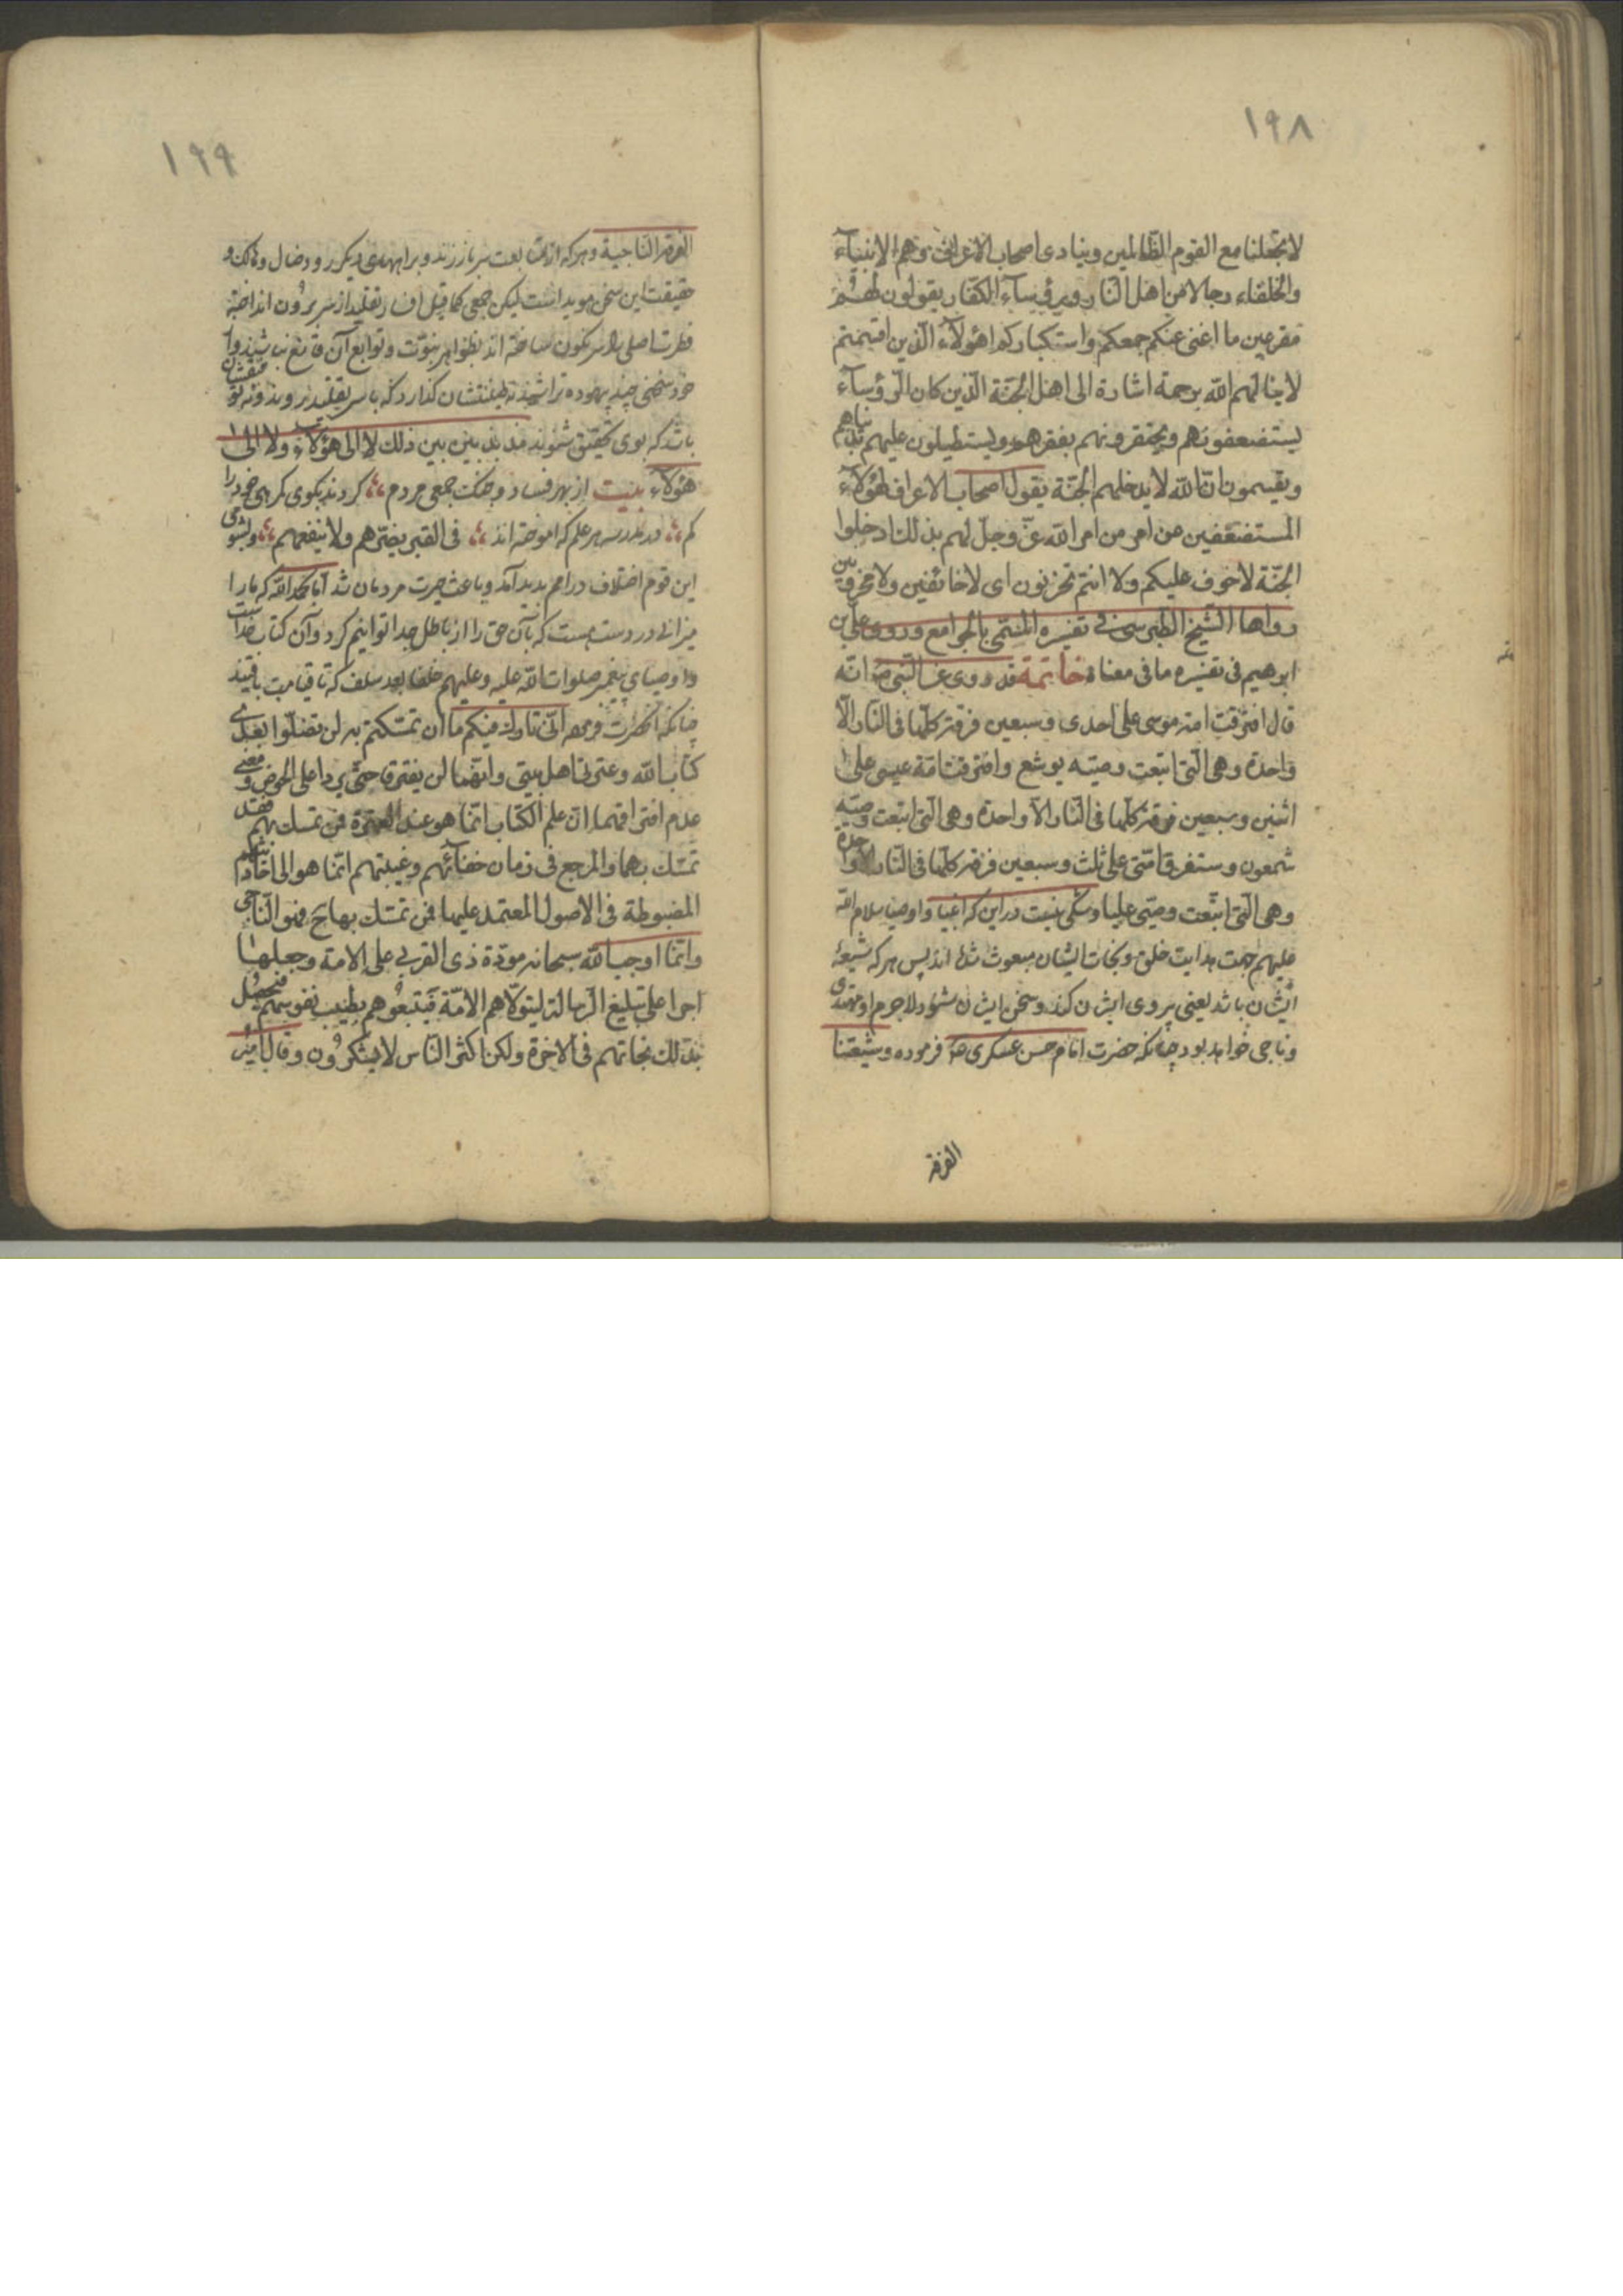 ١٩٨
لا تجعلنا مع القوم الظالمين وينادى اصحاب الاعراف وهم الانبياء
والخلفاء رجالا من اهل النار ورؤساء الكفار يقولون لهم
مقرعين ما اغنى عنكم جمعكم واستكباركم اهؤلاء الذين اقسمتم
لا ينالهم الله برحمة اشارة الى اهل الجنة الذين كان الرؤساء
يستضعفونهم ويحتقرونهم بفقرهم ويستطيلون عليهم بدنياهم
ويقسمون ان الله لا يدخلهم الجنة يقول اصحاب الاعراف لهؤلاء
المستضعفين عن امر من امر الله عز وجل لهم بذلك ادخلوا
الجنة لا خوف عليكم ولا انتم تحزنون اى لا خائفين ولا محزونين
رواها الشيخ الطبرسى فى تفسيره المسمى بالجوامع وروى على بن
ابرهيم فى تفسيره ما فى معناه خاتمة قد روى عن النبى ص انه
قال افترقت امة موسى على احدى وسبعين فرقة كلها فى النار الا
واحدة وهى التى اتبعت وصيه يوشع وافترقت امة عيسى على
اثنين وسبعين فرقة كلها فى النار الا واحدة وهى التى اتبعت وصيه
شمعون وستفرق امتى على ثلث وسبعين فرقة كلها فى النار الا واحدة
وهى التى اتبعت وصيى عليا وشكى نيست دراين كه انبيا واوصيا سلام الله
عليهم جهت هدايت خلق ونجات ايشان مبعوث شده اند پس هركه شيعهٔ
ايشان باشد يعنى پيروى ايشان كند وسخن ايشان شنود لاجرم او مهتدى
وناجى خواهد بود چنانكه حضرت امام حسن عسكرى ع فرموده وشيعتنا
الفرقة
١٩٩
الفرقة الناجية وهركه از متابعت سر باز زند وبراه ديگر رود ضال وهالك و
حقيقت اين سخن هويداست ليكن جمعى كما قيل افسار تقليد از سر برون انداخته
فطرت اصلى را سرنگون ساخته اند بظواهر نبوت وتوابع آن قانع نباشند واز
خود سخنى چند بيهوده تراشند نه طينتشان گذارد كه با سر تقليد روند ونه توفيقشان
باشد كه بوى تحقيق شنوند مذبذبين بين ذلك لا الى هؤلاء ولا الى
هؤلاء بيت از بهر فساد وجنگ جمعى مردم كردند بكوى گمرهى خود را
گم در مدرسه هر علم كه اموخته اند فى القبر يضرهم ولا ينفعهم وبشومى
اين قوم اختلاف در امم پديد آمد وباعث حيرت مردمان شد اما بحمد الله كه ما را
ميزانى در دست هست كه بآن حق را از باطل جدا توانيم كرد وآن كتاب خداست
واوصياى پيغمبر صلوات الله عليه وعليهم خلفا بعد سلف كه تا قيامت باقيند
چنانكه آنحضرت فرموده انى تارك فيكم ما ان تمسكتم به لن تضلوا بعدى
كتاب الله وعترتى اهل بيتى وانهما لن يفترقا حتى يردا على الحوض ومعنى
عدم افتراقهما ان علم الكتاب انما هو عند العترة فمن تمسك بهم فقد
تمسك بهما والمرجع فى زمان خفائهم وغيبتهم انما هو الى اخبارهم
المضبوطة فى الاصول المعتمد عليها فمن تمسك بها فهو الناجى
وانما اوجب الله سبحانه مودة ذى القربى على الامة وجعلها
اجرا على تبليغ الرسالة ليتولاهم الامة فيتبعوهم بطيب نفوسهم فيحصل
بذلك نجاتهم فى الاخرة ولكن اكثر الناس لا يشكرون وقال امير